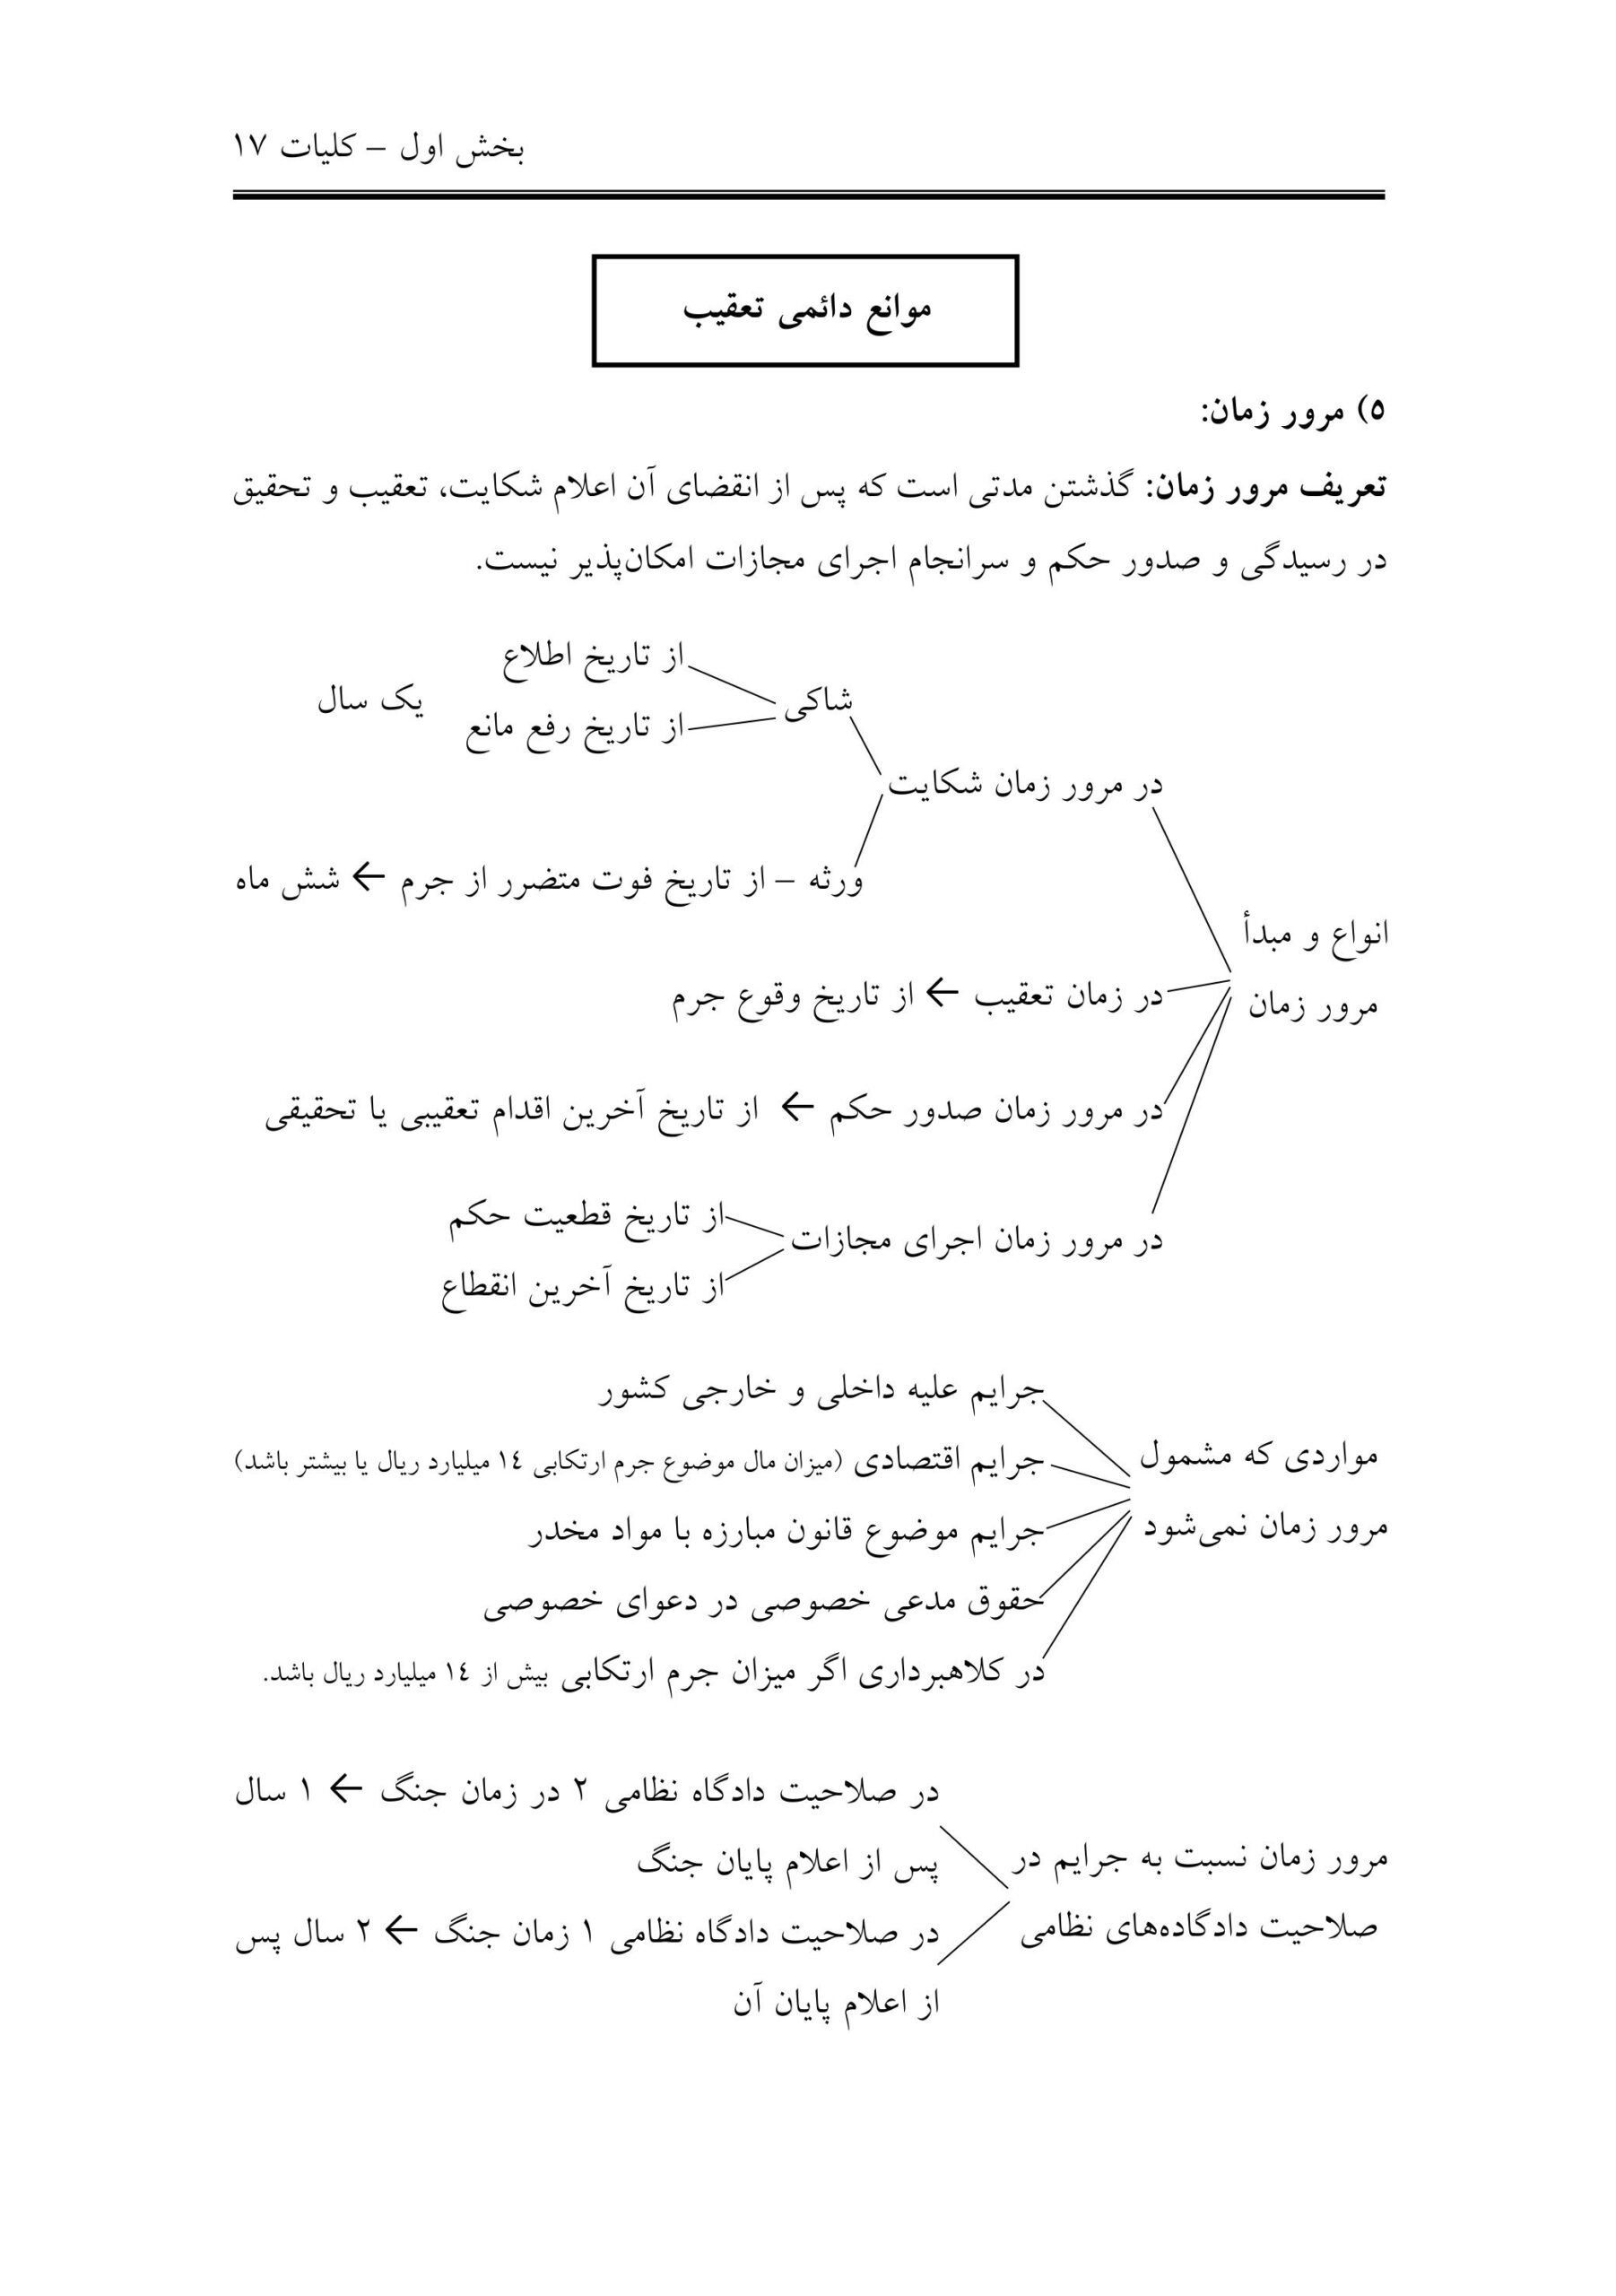 بخش اول – کلیات ۱۷
موانع دائمی تعقیب
۵) مرور زمان:
تعریف مرور زمان: گذشتن مدتی است که پس از انقضای آن اعلام شکایت، تعقیب و تحقیق
در رسیدگی و صدور حکم و سرانجام اجرای مجازات امکان‌پذیر نیست.
از تاریخ اطلاع
شاکی
یک سال
از تاریخ رفع مانع
در مرور زمان شکایت
ورثه – از تاریخ فوت متضرر از جرم ← شش ماه
انواع و مبدأ
مرور زمان
در زمان تعقیب ← از تاریخ وقوع جرم
در مرور زمان صدور حکم ← از تاریخ آخرین اقدام تعقیبی یا تحقیقی
از تاریخ قطعیت حکم
در مرور زمان اجرای مجازات
از تاریخ آخرین انقطاع
جرایم علیه داخلی و خارجی کشور
مواردی که مشمول
جرایم اقتصادی (میزان مال موضوع جرم ارتکابی ۱۴ میلیارد ریال یا بیشتر باشد)
مرور زمان نمی‌شود
جرایم موضوع قانون مبارزه با مواد مخدر
حقوق مدعی خصوصی در دعوای خصوصی
در کلاهبرداری اگر میزان جرم ارتکابی بیش از ۱۴ میلیارد ریال باشد.
در صلاحیت دادگاه نظامی ۲ در زمان جنگ ← ۱ سال
مرور زمان نسبت به جرایم در
پس از اعلام پایان جنگ
صلاحیت دادگاده‌های نظامی
در صلاحیت دادگاه نظامی ۱ زمان جنگ ← ۲ سال پس
از اعلام پایان آن